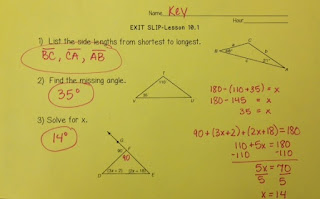 Name Key
Hour
EXIT SLIP-Lesson 10.1
1) List the side lengths from shortest to longest.
BC, CA, AB
2) Find the missing angle.
35°
180-(110+35) = x
180-145 = x
35 = x
3) Solve for x.
14°
90
(3x + 2)
(2x + 18)
90+(3x+2)+(2x+18)=180
110+5x=180
-110 -110
5x = 70
5 5
x = 14